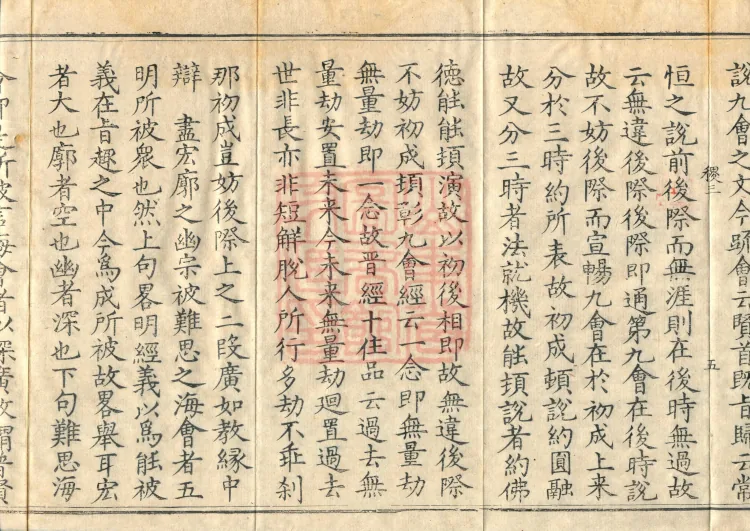 說九會之文今號會云賢首既旨歸云常
恒之說前後際而無涯則在後時無過故
云無違後際後際即通第九會在後時說
故不妨後際而宣暢九會在於初成上来
分於三時約所表故初成頓說約圓融
故又分三時者法就機故能頓說者約佛
徳能能頓演故以初後相即故無違後際
不妨初成頓彰九會經云一念即無量劫
無量劫即一念故晋經十住品云過去無
量劫安置未来今未来無量劫廻置過去
世非長亦非短解脫人所行多劫不乖刹
那初成豈妨後際上之二段廣如教縁中
辯 盡宏廓之幽宗被難思之海會者五
明所被衆也然上句畧明經義以為能被
義在旨趣之中今為成所被故畧舉耳宏
者大也廓者空也幽者深也下句難思海
稷三
五